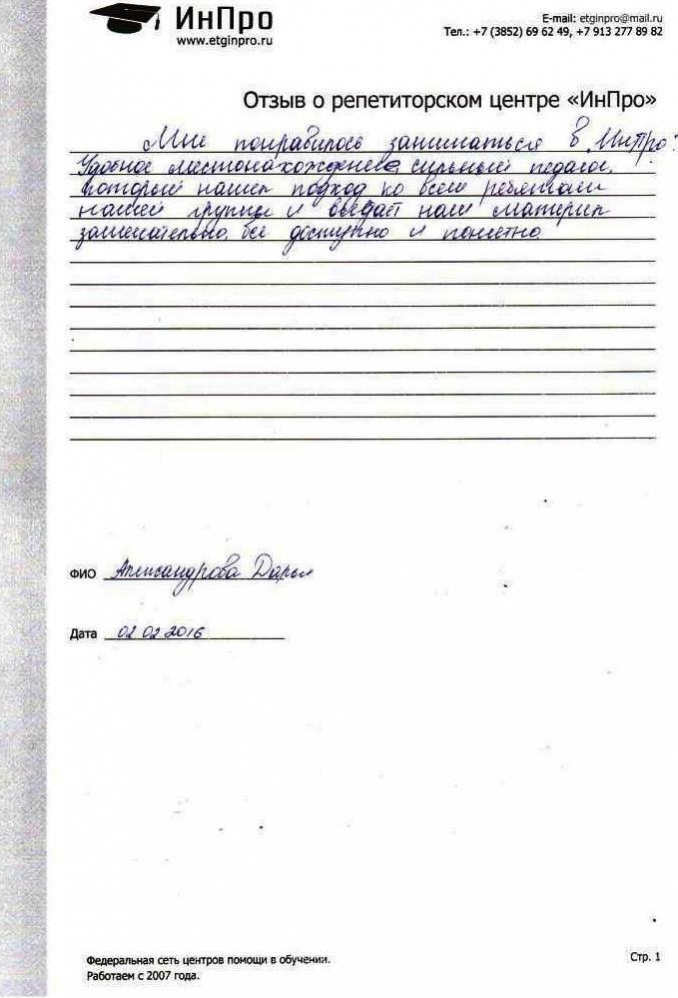 ИнПро
www.etginpro.ru
E-mail: etginpro@mail.ru
Тел.: +7 (3852) 69 62 49, +7 913 277 89 82
Отзыв о репетиторском центре «ИнПро»
Мне понравилось заниматься в ИнПро:
Удобное местонахождение, сильный педагог,
который нашел подход ко всем ребятам
нашей группы и выдает нам материал
замечательно, все доступно и понятно.
ФИО Александрова Дарья
Дата 02 02 2016
Федеральная сеть центров помощи в обучении.
Работаем с 2007 года.
Стр. 1